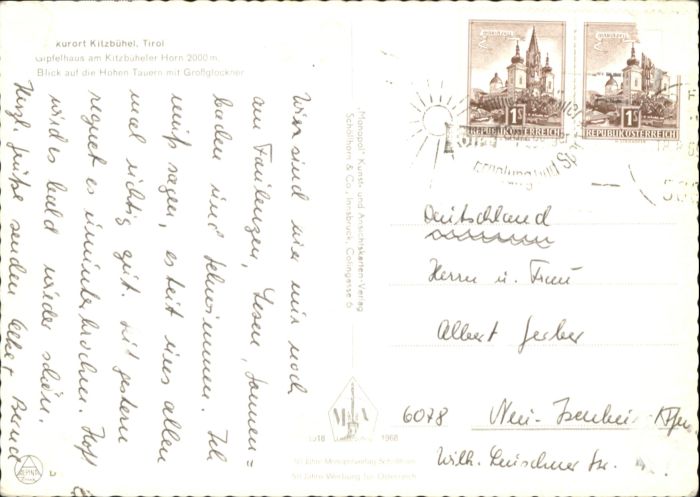 kurort Kitzbühel, Tirol
Gipfelhaus am Kitzbüheler Horn 2000 m
Blick auf die Hohen Tauern mit Großglockner
Wir sind hier nur noch
am Faulenzen, Lesen, Sonnen=
baden und Schwimmen. Ich
muß sagen, es tut uns allen
mal richtig gut. Seit gestern
regnet es ununterbrochen. Hoff
wird es bald wieder schön.
Herzl. Grüße senden
"Monopol" Kunst- und Ansichtskarten-Verlag
Schöllhorn & Co., Innsbruck, Colingasse 6
1968
50 Jahre Monopolverlag Schöllhorn
50 Jahre Werbung für Österreich
MARIAZELL
1S
REPUBLIK ÖSTERREICH
MARIAZELL
1S
REPUBLIK ÖSTERREICH
Erholung und
Deutschland
Herrn u. Frau
Albert Gerber
6078 Neu-Isenburg
Wilh. Leuschner Str.